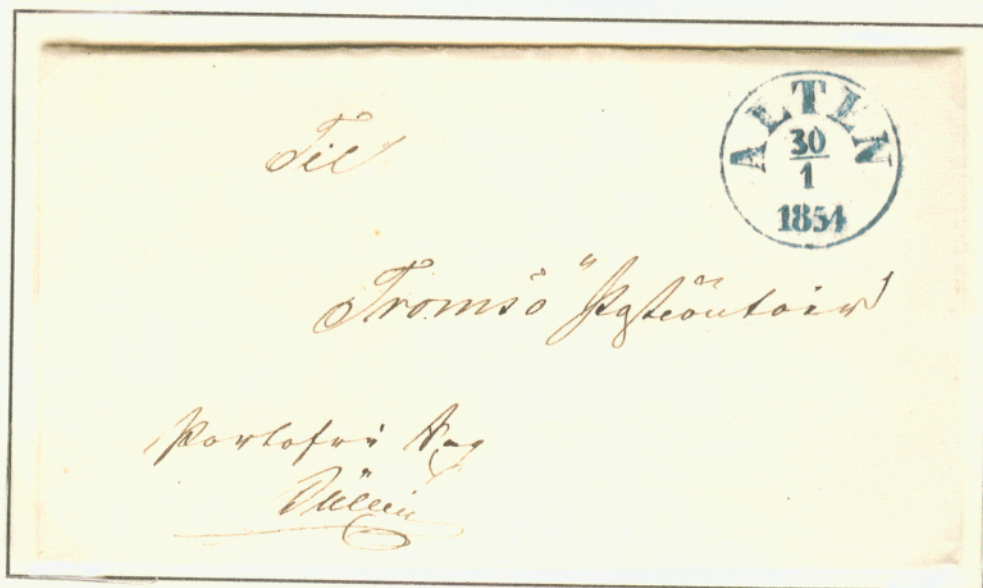 ALTEN
30
1
1854
Til
Tromsö Postcontoir
Portofrie Sag